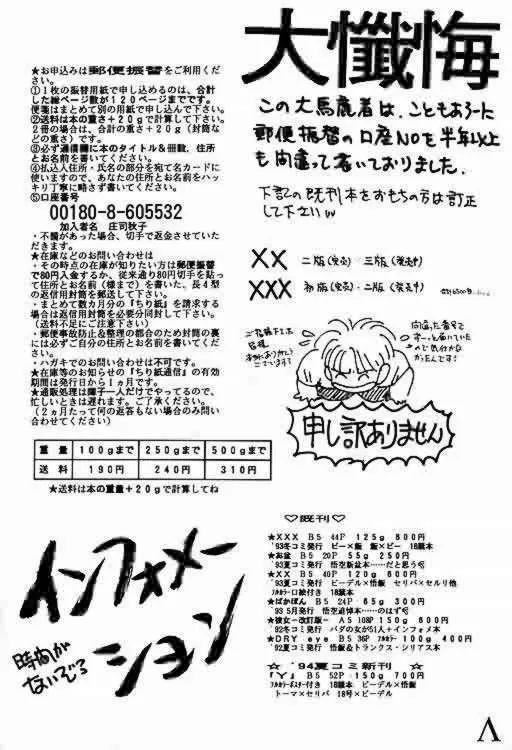 ★お申込みは郵便振替をご利用くだ
さい。
①1枚の振替用紙で申し込めるのは、合計
した総ページ数が120ページまでです。
便箋はまとめて別の用紙で申し込んで下さい。
②送料は本の重さ+20gで計算して下さい。
2冊の場合は、合計の重さ+20g(封筒な
どの重さ)です。
③必ず通信欄に本のタイトル&冊数、住所
とお名前を書いてください。
④払込人住所・氏名の部分を宛て名カードに
使いますので、あなたの住所とお名前をハッ
キリ丁寧に書いてください。
⑤口座番号
00180-8-605532
加入者名 庄司秋子
・不備があった場合、切手で返金させていた
だきます。
★在庫などのお問い合わせは
・その時点の在庫が知りたい方は郵便振替
で80円入金するか、従来通り80円切手を貼っ
て住所とお名前(様まで)を書いた、長4型
の返信用封筒を郵送して下さい。
・まとめて数ヵ月分の『ちり紙』を請求する
場合は返信用封筒を必要分同封して下さい。
(送料不足にご注意下さい)
・郵便事故防止&整理の都合のため封筒の裏
には必ずご自分の住所とお名前を書いて下さ
い。
・ハガキでのお問い合わせは不可です。
★在庫等のお知らせの『ちり紙通信』の有効
期間は発行日から1ヵ月です。
★通販処理は障子一人だけでやってるので、
忙しいときは遅れます。ご了承ください。
(2ヵ月たって何の返答もない場合のみ問い
合わせてください)
重量 100gまで 250gまで 500gまで
送料 190円 240円 310円
★送料は本の重量+20gで計算してね
インフォメー
ション
時間が
ないぞう
大懺悔
この大馬鹿者は、こともあろーに
郵便振替の口座NOを半年以上
も間違って書いておりました。
下記の既刊本をおもちの方は訂正
して下さい
XX 二版(完売)・三版(発売中)
XXX 初版(完売)・二版(発売中)
ご指摘下さった
皆様
本当にありがとう
ございます!!
間違った番号で
ずーっと届いていた
ので気付かな
かったんです!
申し訳ありません
♡既刊♡
★XXX B5 44P 125g 800円
'93冬コミ発行 ビー×飯 飯×ビー 18禁本
★お盆 B5 20P 55g 250円
'93夏コミ発行 悟空新盆本……だと思う
★XX B5 40P 120g 600円
'93夏コミ発行 ビーデル×悟飯 セリパ×セルリ他
フルカラー口絵付き 18禁本
★ばかぼん B5 24P 65g 300円
'93 5月発行 悟空追悼本……のはず
★彼女-改訂版- A5 108P 150g 600円
'92冬コミ発行 バダの女が51人+インフォメ本
★DRY eye B5 36P フルカラー 100g 400円
'92夏コミ発行 悟飯&トランクス・シリアス本
☆ '94夏コミ新刊 ☆
『Y』 B5 52P 150g 700円
フルカラーポスター付き 18禁本 ビーデル×悟飯
トーマ×セリパ 18号×ビーデル